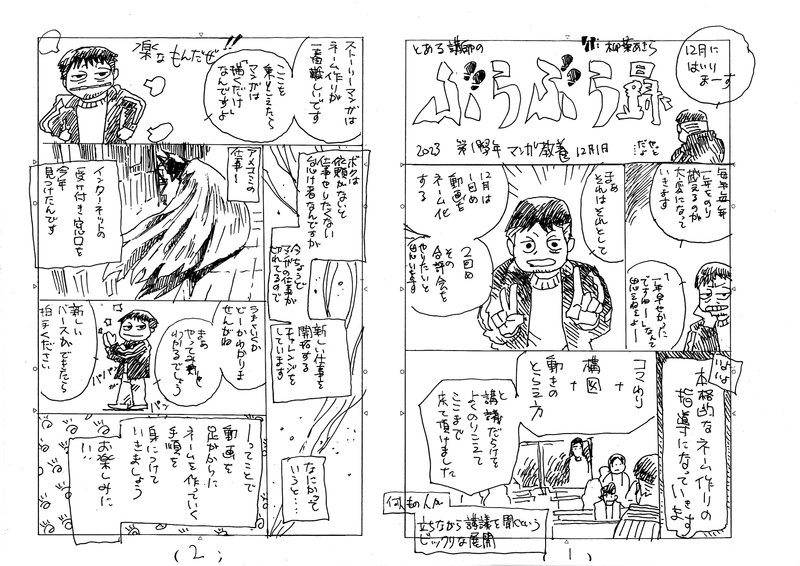 12月に
はいり
まーす
とある講師の
ぶらぶら
2023 第 学年 マンガ教養 12月1日
毎年毎年
一年をのり
越えるのが
大変になって
いきます
まぁ
それはそれとして
12月は
1回め
動画を
ネーム化
する
2回め
その
合評会を
やりたいと
思います
いよいよ
本格的なネーム作りの
指導になっていきます
コマわり
+
構図
+
動きの
とらえ方
と
講議だらけを
よくのりこえて
ここまで
来て頂けました
何人もの人が
立ちながら講議を聞くという
ビックリな展開
(1)
ストーリーマンガは
ネーム作りが
一番難しいです
ここを
乗りこえたら
マンガは
「描くだけ」
なんですよ
楽なもんだぜ!!
ボクは
依頼がないと
仕事せりたくない
怠け者なんですが
今ちょうど
子分の仕事が
切れてるので
アメコミの
仕事!
インターネットの
受け付き窓口を
今年
見つけたんです
新しい仕事を
開拓する
チャレンジを
しています
うまくいくか
どーかわかりま
せんがね
まぁ
やって無駄は
ないでしょう
新しい
バースができたら
拍手ください
パパパ
パン
なにかって
いうと…
ーってことで
動画を
足がかりに
ネームを作っていく
手順を
身につけて
いきましょう
お楽しみに
(2)